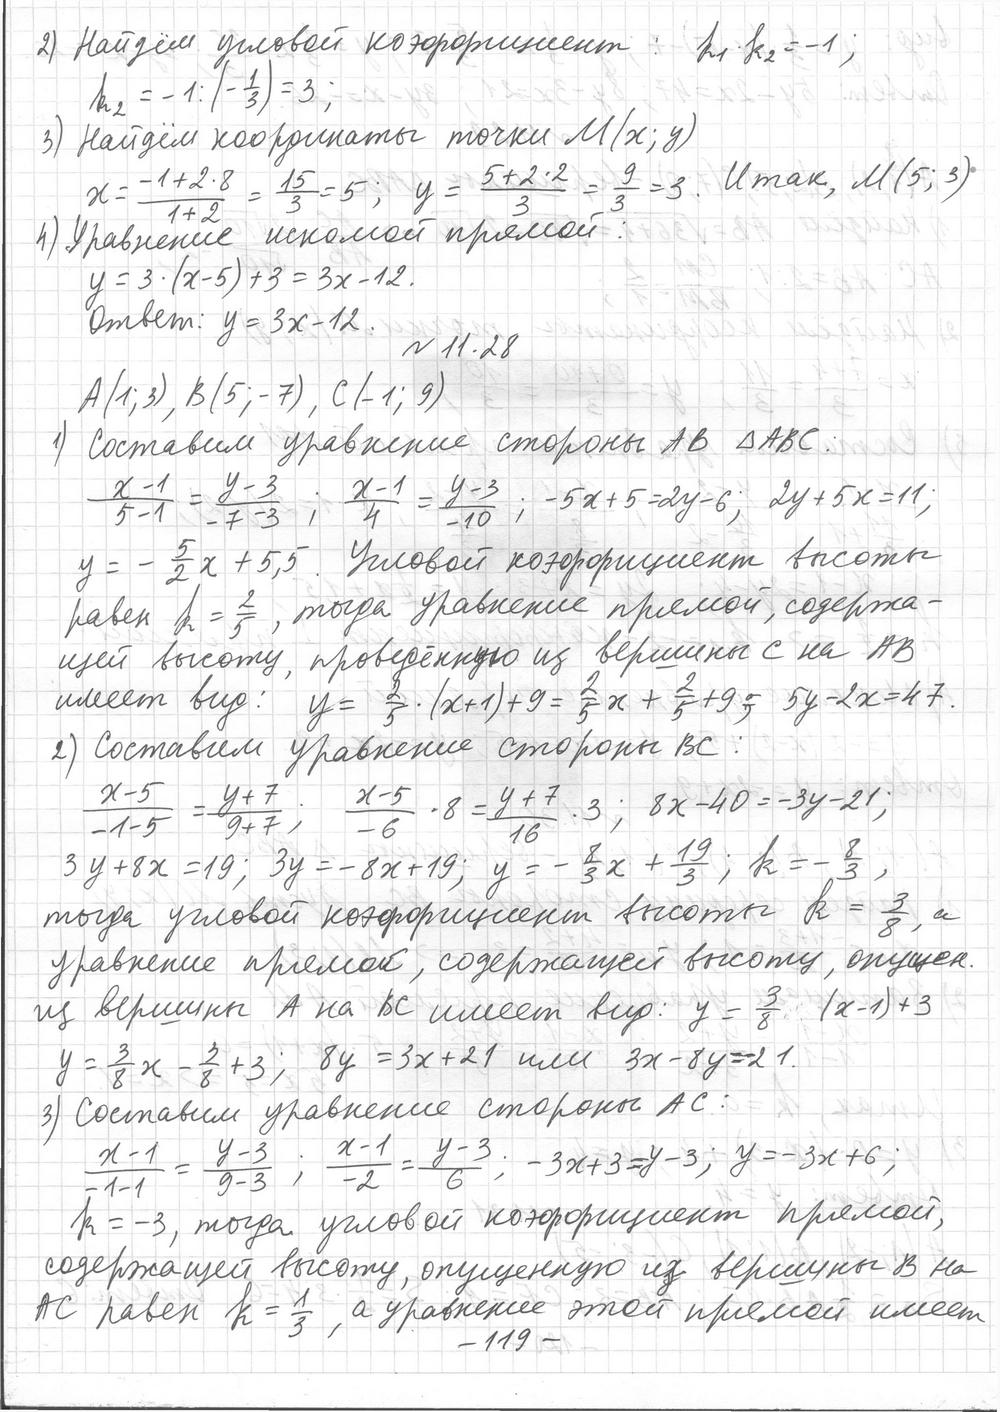 2) Найдём угловой коэффициент: k₁·k₂=-1;
k₂ = -1:(-1/3)=3;
3) Найдём координаты точки M(x; y)
x = (-1+2·8)/(1+2) = 15/3 = 5; y = (5+2·2)/3 = 9/3 = 3. Итак, M(5; 3)
4) Уравнение искомой прямой:
y = 3·(x-5)+3 = 3x-12.
Ответ: y = 3x-12.
№ 11.28
A(1;3), B(5;-7), C(-1; 9)
1) Составим уравнение стороны AB △ABC:
(x-1)/(5-1) = (y-3)/(-7-3); (x-1)/4 = (y-3)/(-10); -5x+5=2y-6; 2y+5x=11;
y = -5/2x + 5,5. Угловой коэффициент высоты
равен k = 2/5, тогда уравнение прямой, содержа-
щей высоту, проведённую из вершины C на AB
имеет вид: y = 2/5·(x+1)+9 = 2/5x + 2/5+9; 5y-2x=47.
2) Составим уравнение стороны BC:
(x-5)/(-1-5) = (y+7)/(9+7); (x-5)/(-6)·8 = (y+7)/16·3; 8x-40=-3y-21;
3y+8x=19; 3y=-8x+19; y = -8/3x + 19/3; k = -8/3,
тогда угловой коэффициент высоты k = 3/8, а
уравнение прямой, содержащей высоту, опущен.
из вершины A на BC имеет вид: y = 3/8 (x-1)+3
y = 3/8x - 3/8+3; 8y=3x+21 или 3x-8y=-21.
3) Составим уравнение стороны AC:
(x-1)/(-1-1) = (y-3)/(9-3); (x-1)/(-2) = (y-3)/6; -3x+3=y-3; y=-3x+6;
k = -3, тогда угловой коэффициент прямой,
содержащей высоту, опущенную из вершины B на
AC равен k = 1/3, а уравнение этой прямой имеет
-119-